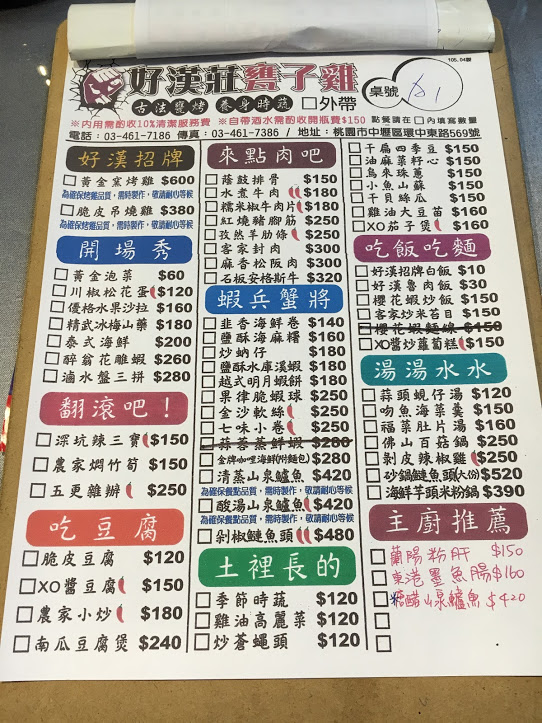 105.04版
好漢莊甕子雞
古法甕烤 養身時蔬
□外帶
桌號
※內用需酌收10%清潔服務費 ※自帶酒水需酌收開瓶費$150 點餐請在□內填寫數量
電話：03-461-7186 傳真：03-461-7386 / 地址：桃園市中壢區環中東路569號
好漢招牌
□黃金窯烤雞 $600
為確保烤雞品質，需時製作，敬請耐心等候
□脆皮吊燒雞 $380
為確保烤雞品質，需時製作，敬請耐心等候
開場秀
□黃金泡菜 $60
□川椒松花蛋 $120
□優格水果沙拉 $160
□精武冰梅山藥 $180
□泰式海鮮 $200
□醉翁花雕蝦 $260
□滷水盤三拼 $280
翻滾吧！
□深坑辣三寶 $150
□農家燜竹筍 $150
□五更雜辦 $250
吃豆腐
□脆皮豆腐 $120
□XO醬豆腐 $150
□農家小炒 $180
□南瓜豆腐煲 $240
來點肉吧
□蔭鼓排骨 $150
□水煮牛肉 $180
□糯米椒牛肉片 $180
□紅燒豬腳筋 $250
□孜然羊肋條 $250
□客家封肉 $300
□麻香松阪肉 $300
□石板安格斯牛 $320
蝦兵蟹將
□韭香海鮮卷 $140
□鹽酥海麻糬 $160
□炒蚋仔 $180
□鹽酥水庫溪蝦 $180
□越式明月蝦餅 $180
□果律脆蝦球 $250
□金沙軟絲 $250
□七味小卷 $250
□蒜蓉蒸鮮蝦 $280
□金牌咖哩海鮮(附麵包) $280
□清蒸山泉鱸魚 $420
為確保餐點品質，需時製作，敬請耐心等候
□酸湯山泉鱸魚 $420
為確保餐點品質，需時製作，敬請耐心等候
□剁椒鰱魚頭 $480
土裡長的
□季節時蔬 $120
□雞油高麗菜 $120
□炒蒼蠅頭 $120
□干扁四季豆 $150
□油麻菜籽心 $150
□烏來珠蔥 $150
□小魚山蘇 $150
□干貝絲瓜 $150
□雞油大豆苗 $160
□XO茄子煲 $160
吃飯吃麵
□好漢招牌白飯 $10
□好漢魯肉飯 $30
□櫻花蝦炒飯 $150
□客家炒米苔目 $150
□櫻花蝦麵線 $150
□XO醬炒蘿蔔糕 $150
湯湯水水
□蒜頭蜆仔湯 $120
□吻魚海菜羹 $150
□福菜肚片湯 $160
□佛山百菇鍋 $250
□剝皮辣椒雞 $250
□砂鍋鰱魚頭(大份) $520
□海鮮芋頭米粉鍋 $390
主廚推薦
□蘭陽粉肝 $150
□東港墨魚腸 $160
□糖醋山泉鱸魚 $420
□
□